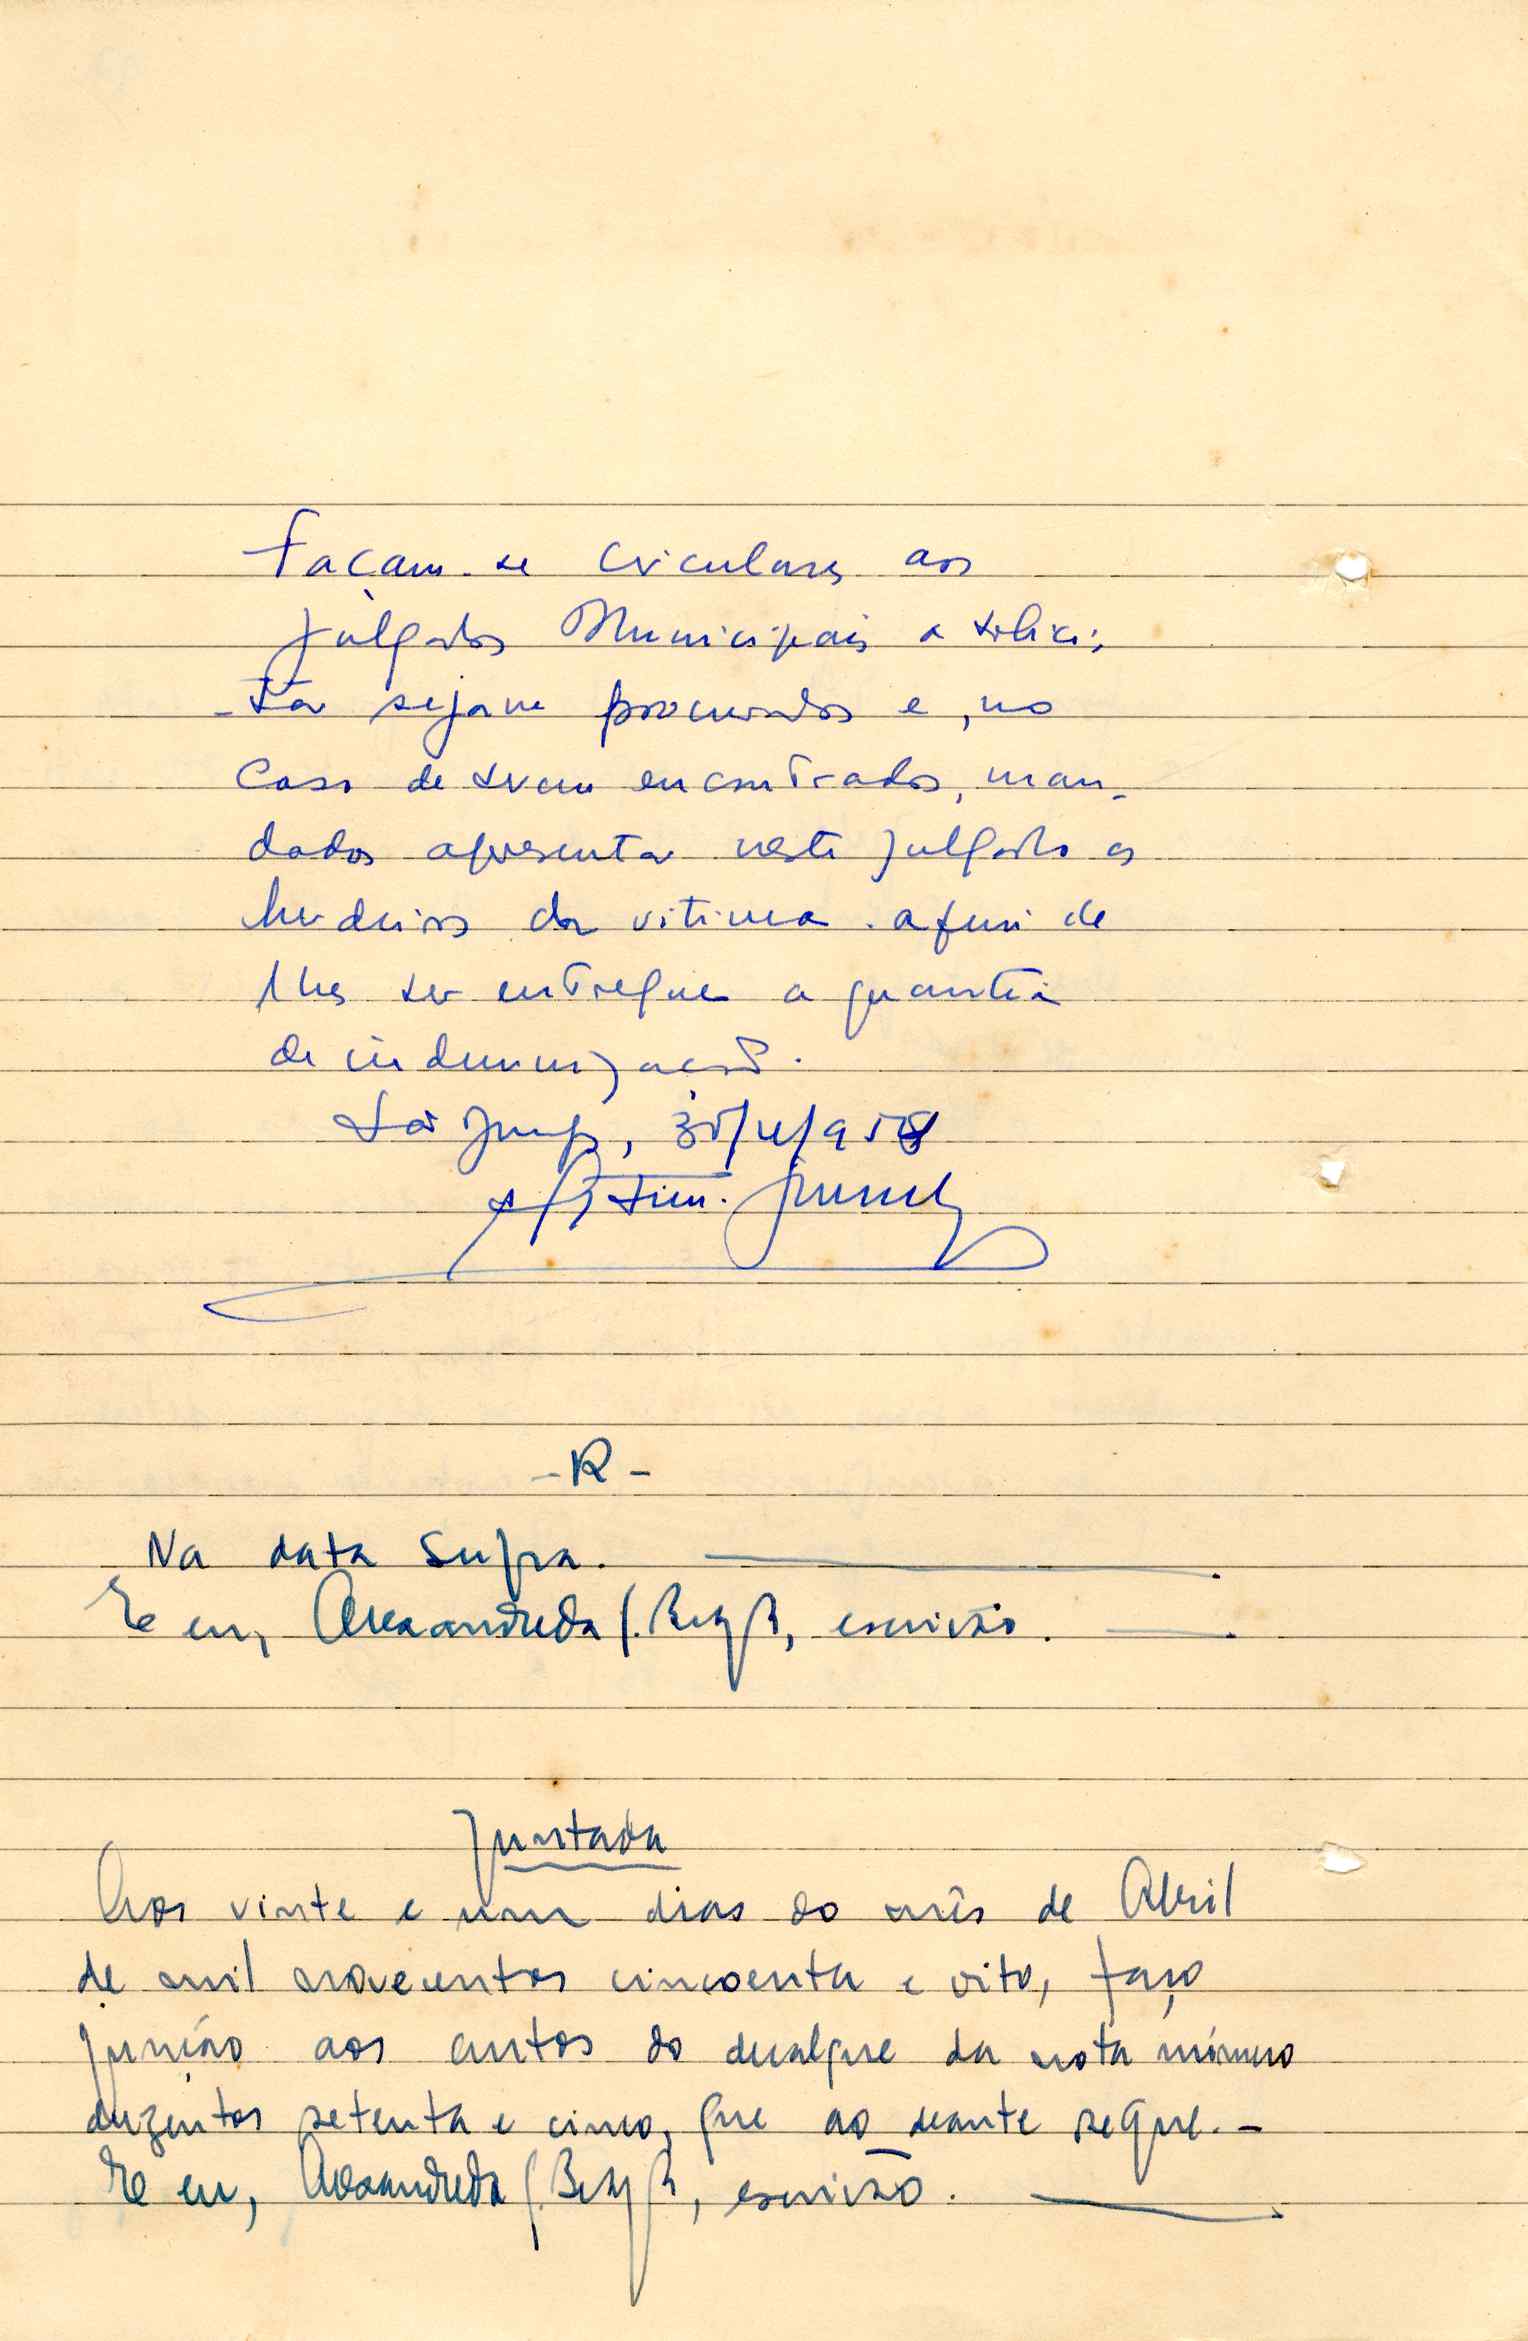 Façam-se circulares aos
Julgados Municipais a solici-
-tar sejam procurados e, no
caso de serem encontrados, man-
dados apresentar neste Julgado os
herdeiros da vitima. afim de
lhes ser entregue a quantia
de indemnização.
/958
-R-
Na data supra.
E eu, escrivão.
Juntada
Aos vinte e um dias do mês de Abril
de mil novecentos cincoenta e oito, faço
junção aos autos do duplique da nota número
duzentos setenta e cinco, que ao deante segue.-
E eu, escrivão.